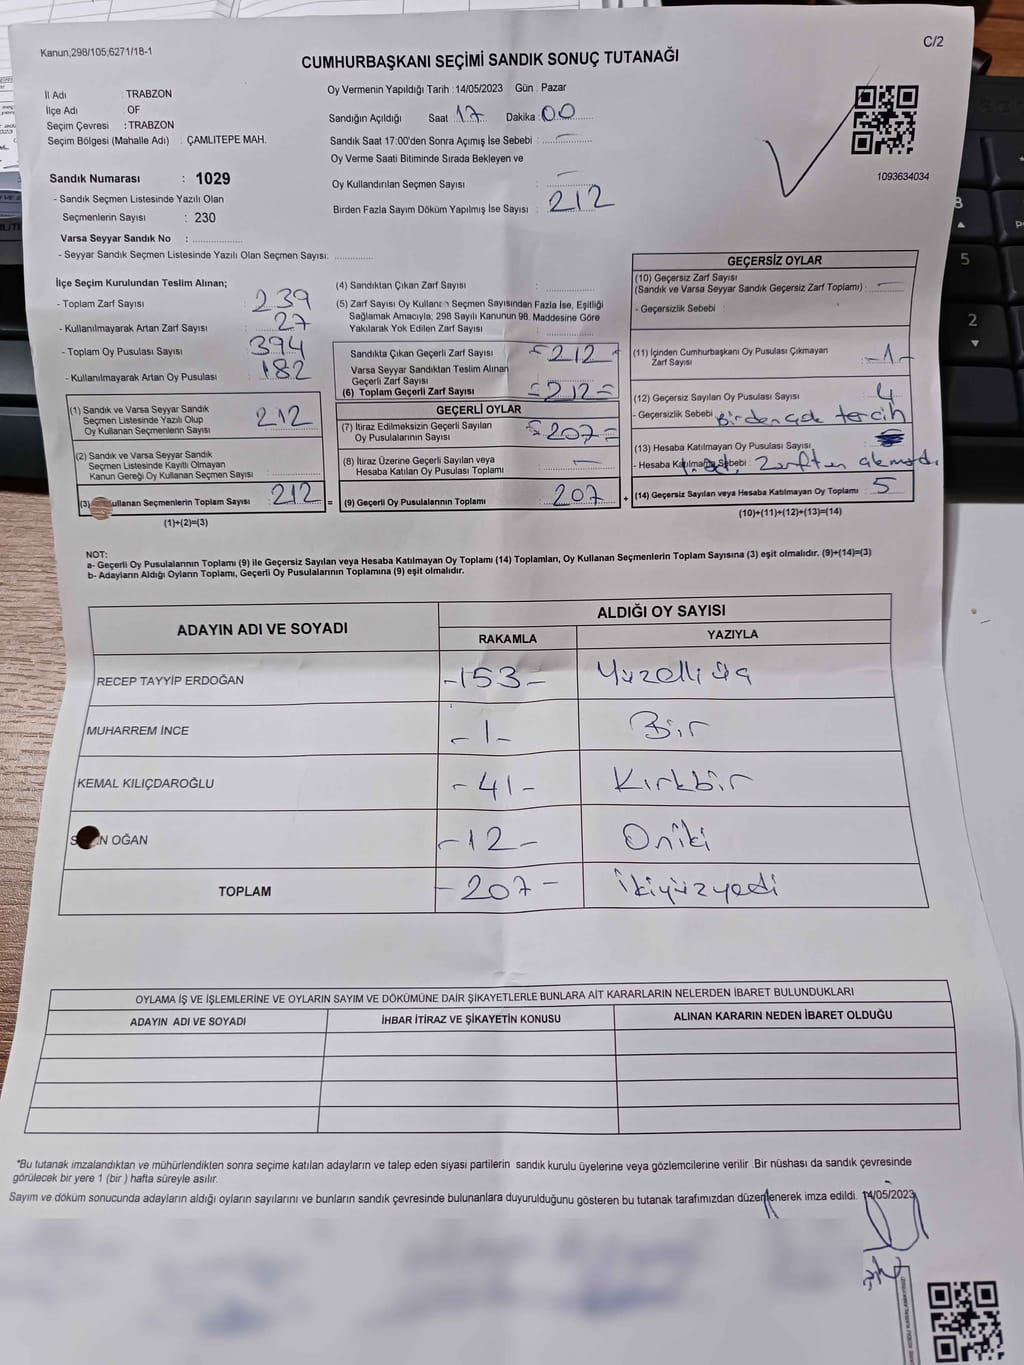 Kanun,298/105,6271/18-1
C/2
CUMHURBAŞKANI SEÇİMİ SANDIK SONUÇ TUTANAĞI
İl Adı : TRABZON
İlçe Adı : OF
Seçim Çevresi : TRABZON
Seçim Bölgesi (Mahalle Adı) : ÇAMLITEPE MAH.
Sandık Numarası : 1029
- Sandık Seçmen Listesinde Yazılı Olan
Seçmenlerin Sayısı : 230
Varsa Seyyar Sandık No :
- Seyyar Sandık Seçmen Listesinde Yazılı Olan Seçmen Sayısı:
Oy Vermenin Yapıldığı Tarih : 14/05/2023 Gün : Pazar
Sandığın Açıldığı Saat 17 Dakika 00
Sandık Saat 17:00'den Sonra Açımış İse Sebebi : —
Oy Verme Saati Bitiminde Sırada Bekleyen ve
Oy Kullandırılan Seçmen Sayısı : —
Birden Fazla Sayım Döküm Yapılmış İse Sayısı : 212
1093634034
İlçe Seçim Kurulundan Teslim Alınan;
- Toplam Zarf Sayısı : 239
- Kullanılmayarak Artan Zarf Sayısı : 27
- Toplam Oy Pusulası Sayısı : 394
- Kullanılmayarak Artan Oy Pusulası : 182
(1) Sandık ve Varsa Seyyar Sandık
Seçmen Listesinde Yazılı Olup
Oy Kullanan Seçmenlerin Sayısı : 212
(2) Sandık ve Varsa Seyyar Sandık
Seçmen Listesinde Kayıtlı Olmayan
Kanun Gereği Oy Kullanan Seçmen Sayısı :
(3) Kullanan Seçmenlerin Toplam Sayısı : 212
(1)+(2)=(3)
(4) Sandıktan Çıkan Zarf Sayısı :
(5) Zarf Sayısı Oy Kullanan Seçmen Sayısından Fazla İse, Eşitliği
Sağlamak Amacıyla; 298 Sayılı Kanunun 98. Maddesine Göre
Yakılarak Yok Edilen Zarf Sayısı :
Sandıkta Çıkan Geçerli Zarf Sayısı = 212
Varsa Seyyar Sandıktan Teslim Alınan
Geçerli Zarf Sayısı
(6) Toplam Geçerli Zarf Sayısı = 212 =
GEÇERLİ OYLAR
(7) İtiraz Edilmeksizin Geçerli Sayılan
Oy Pusulalarının Sayısı = 207 =
(8) İtiraz Üzerine Geçerli Sayılan veya
Hesaba Katılan Oy Pusulası Toplamı : —
= (9) Geçerli Oy Pusulalarının Toplamı : 207 +
GEÇERSİZ OYLAR
(10) Geçersiz Zarf Sayısı
(Sandık ve Varsa Seyyar Sandık Geçersiz Zarf Toplamı) : —
- Geçersizlik Sebebi :
(11) İçinden Cumhurbaşkanı Oy Pusulası Çıkmayan
Zarf Sayısı : -1-
(12) Geçersiz Sayılan Oy Pusulası Sayısı : 4
- Geçersizlik Sebebi : Birden çok tercih
(13) Hesaba Katılmayan Oy Pusulası Sayısı
- Hesaba Katılmama Sebebi : Zarftan çıkmadı
(14) Geçersiz Sayılan veya Hesaba Katılmayan Oy Toplamı : 5
(10)+(11)+(12)+(13)=(14)
NOT:
a- Geçerli Oy Pusulalarının Toplamı (9) ile Geçersiz Sayılan veya Hesaba Katılmayan Oy Toplamı (14) Toplamları, Oy Kullanan Seçmenlerin Toplam Sayısına (3) eşit olmalıdır. (9)+(14)=(3)
b- Adayların Aldığı Oyların Toplamı, Geçerli Oy Pusulalarının Toplamına (9) eşit olmalıdır.
ADAYIN ADI VE SOYADI
ALDIĞI OY SAYISI
RAKAMLA YAZIYLA
RECEP TAYYİP ERDOĞAN -153- Yüzelliüç
MUHARREM İNCE -1- Bir
KEMAL KILIÇDAROĞLU -41- Kırkbir
OĞAN -12- Oniki
TOPLAM -207- İkiyüzyedi
OYLAMA İŞ VE İŞLEMLERİNE VE OYLARIN SAYIM VE DÖKÜMÜNE DAİR ŞİKAYETLERLE BUNLARA AİT KARARLARIN NELERDEN İBARET BULUNDUKLARI
ADAYIN ADI VE SOYADI İHBAR İTİRAZ VE ŞİKAYETİN KONUSU ALINAN KARARIN NEDEN İBARET OLDUĞU
*Bu tutanak imzalandıktan ve mühürlendikten sonra seçime katılan adayların ve talep eden siyasi partilerin sandık kurulu üyelerine veya gözlemcilerine verilir .Bir nüshası da sandık çevresinde
görülecek bir yere 1 (bir ) hafta süreyle asılır.
Sayım ve döküm sonucunda adayların aldığı oyların sayılarını ve bunların sandık çevresinde bulunanlara duyurulduğunu gösteren bu tutanak tarafımızdan düzenlenerek imza edildi. 14/05/2023